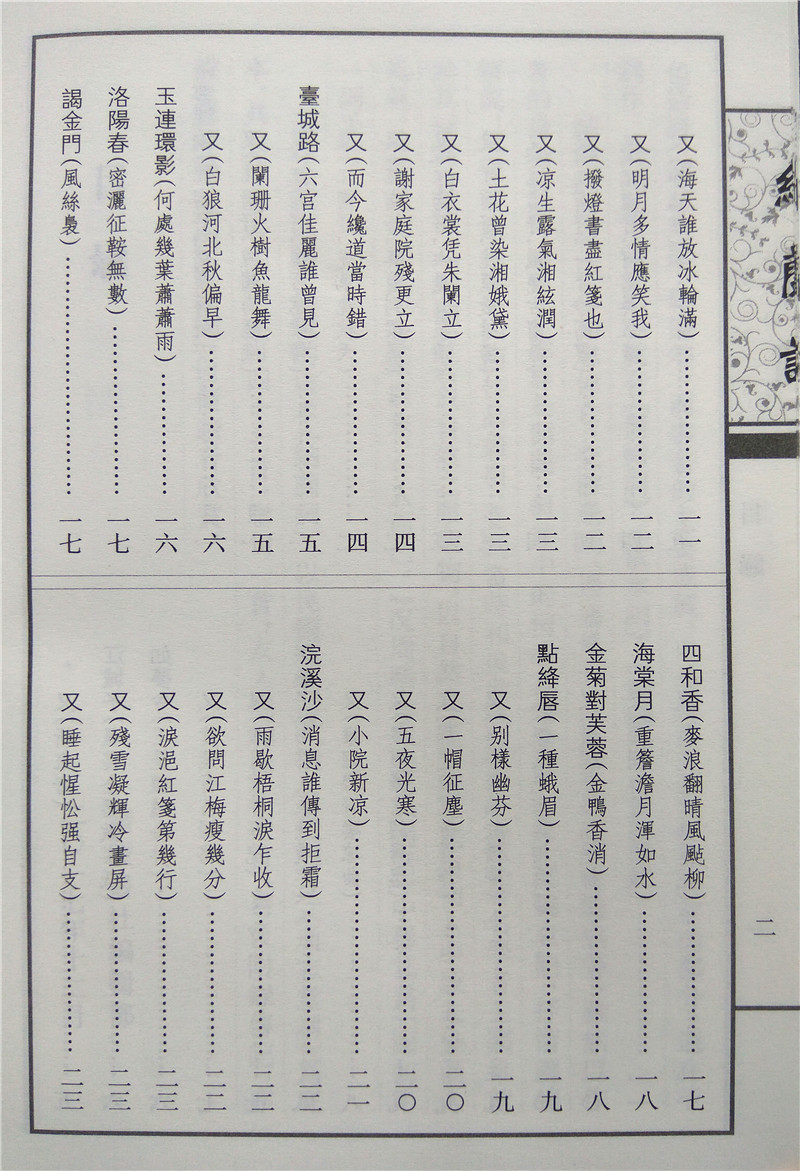 又(海天誰放冰輪滿)………………一一
又(明月多情應笑我)………………一二
又(撥燈書盡紅箋也)………………一二
又(凉生露氣湘絃潤)………………一三
又(土花曾染湘娥黛)………………一三
又(白衣裳凭朱闌立)………………一三
又(謝家庭院殘更立)………………一四
又(而今纔道當時錯)………………一四
臺城路(六宫佳麗誰曾見)………………一五
又(闌珊火樹魚龍舞)………………一五
又(白狼河北秋偏早)………………一六
玉連環影(何處幾葉蕭蕭雨)………………一六
洛陽春(密灑征鞍無數)………………一七
謁金門(風絲裊)………………一七
四和香(麥浪翻晴風颭柳)………………一七
海棠月(重簷澹月渾如水)………………一八
金菊對芙蓉(金鴨香消)………………一八
點絳唇(一種蛾眉)………………一九
又(别樣幽芬)………………一九
又(一帽征塵)………………二〇
又(五夜光寒)………………二〇
又(小院新凉)………………二一
浣溪沙(消息誰傳到拒霜)………………二二
又(雨歇梧桐淚乍收)………………二二
又(欲問江梅瘦幾分)………………二二
又(淚浥紅箋第幾行)………………二三
又(殘雪凝輝冷畫屏)………………二三
又(睡起惺忪强自支)………………二三
二